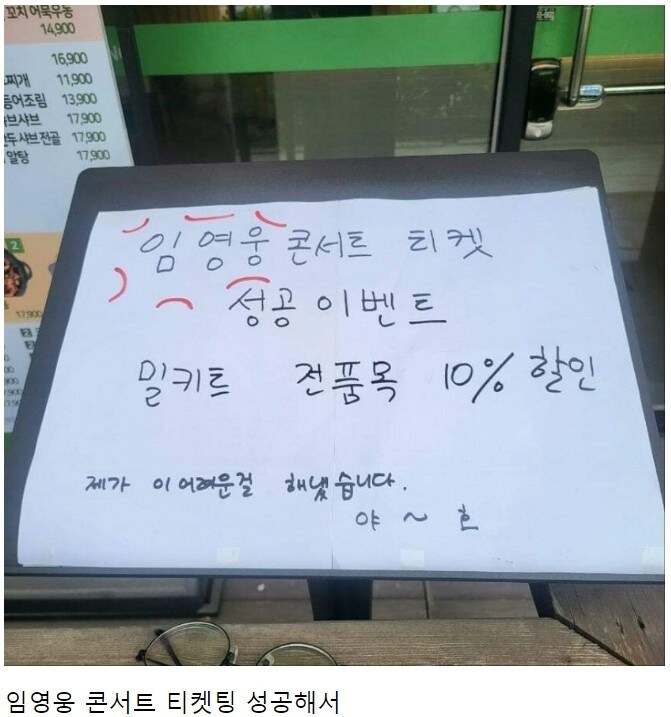 꼬치 어묵우동
14,900
16,900
찌개 11,900
등어조림 13,900
브샤브 17,900
두샤브전골 17,900
알탕 17,900
2
17,900
임영웅 콘서트 티켓
성공 이벤트
밀키트 전품목 10% 할인
제가 이 어려운걸 해냈습니다.
야 ~ 호
임영웅 콘서트 티켓팅 성공해서